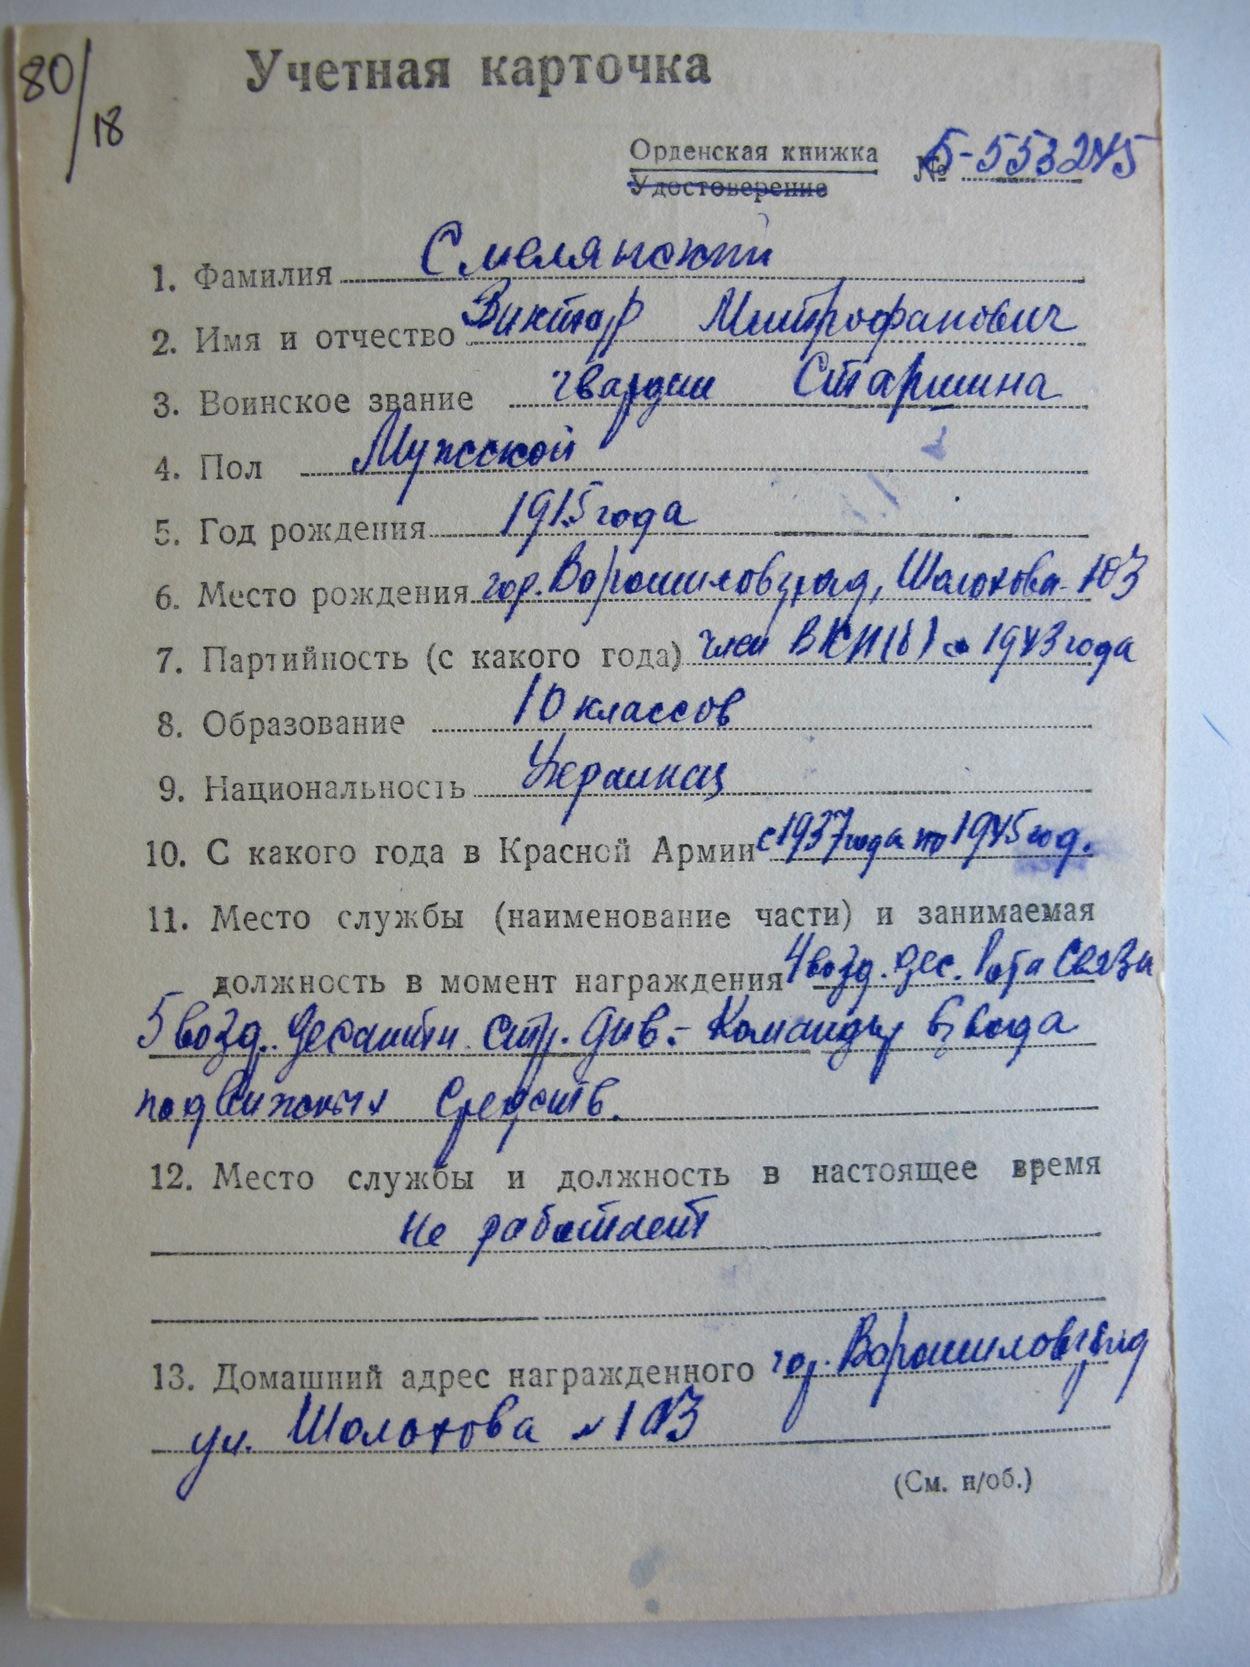 80/18
Учетная карточка
Орденская книжка № Б-553245
Удостоверение
1. Фамилия Смелянский
2. Имя и отчество Виктор Митрофанович
3. Воинское звание гвардии Старшина
4. Пол Мужсской
5. Год рождения 1915 года
6. Место рождения гор. Ворошиловград, Шолохова 103
7. Партийность (с какого года) член ВКП(б) с 1943 года
8. Образование 10 классов
9. Национальность Украинец
10. С какого года в Красной Армии с 1937 года по 1945 год.
11. Место службы (наименование части) и занимаемая
должность в момент награждения 4 возд. дес. Рота Связи
5 возд. десантн. стр. див. - Командир взвода
подвижных средств.
12. Место службы и должность в настоящее время
не работает
13. Домашний адрес награжденного гор. Ворошиловград
ул. Шолохова № 103
(См. н/об.)